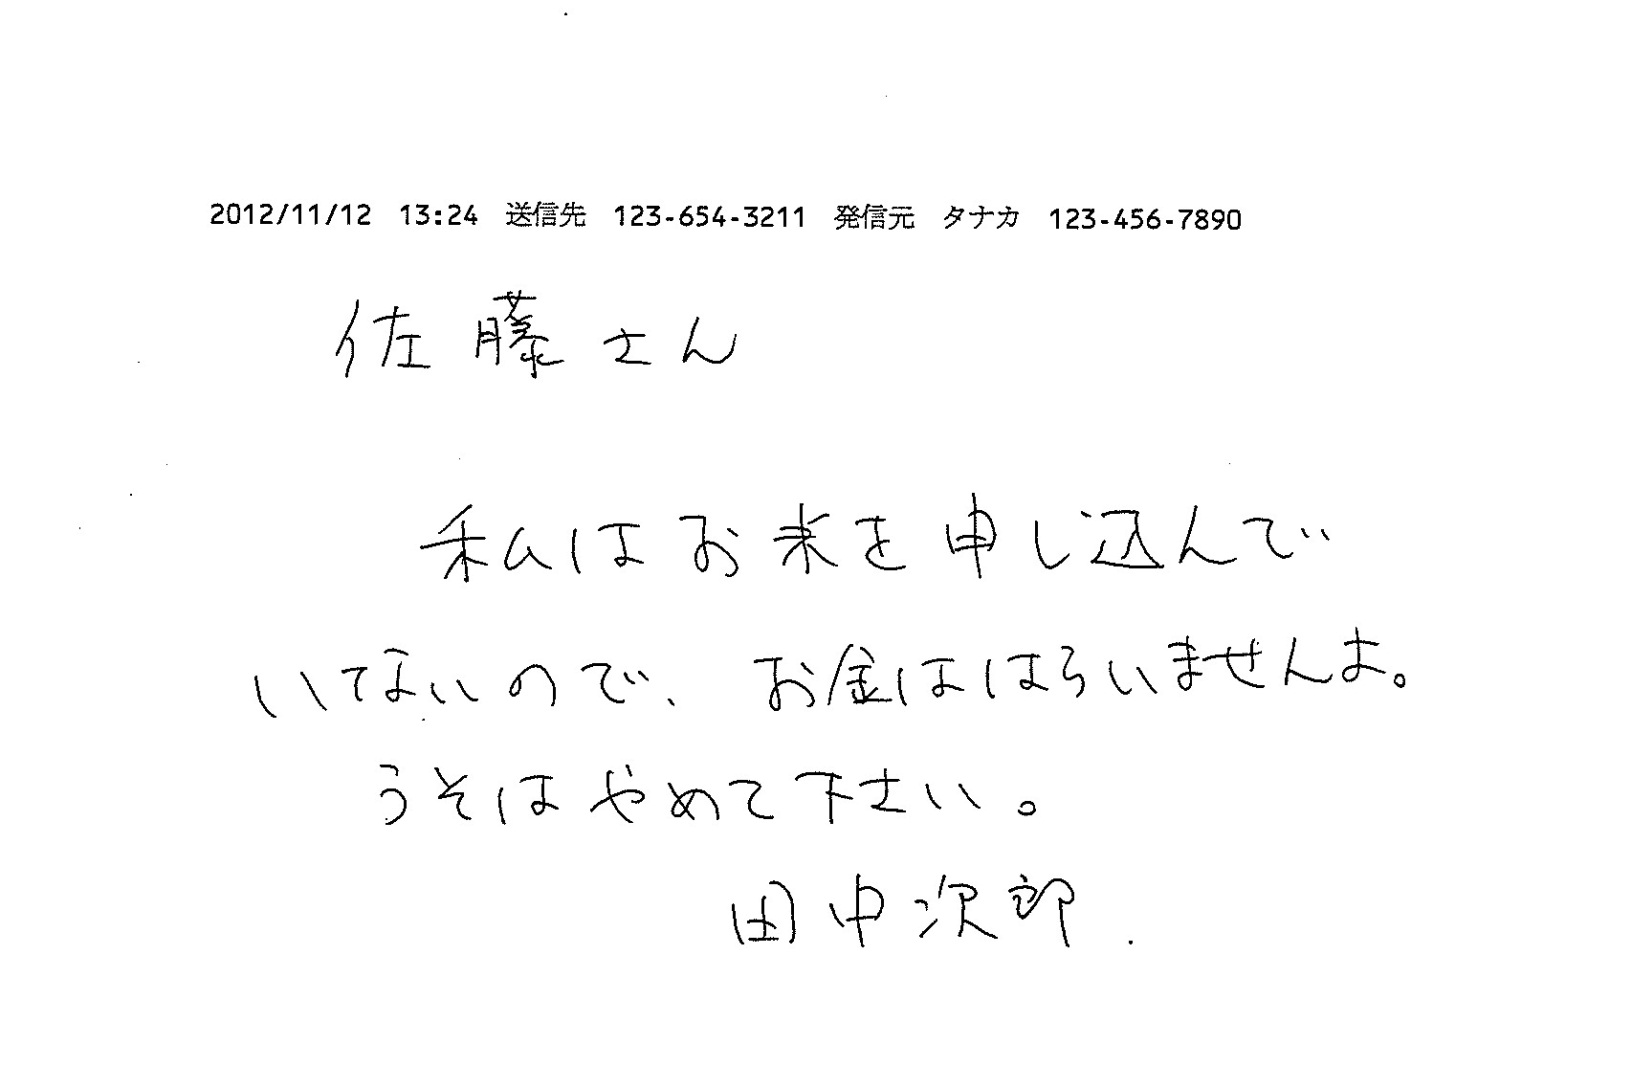 2012/11/12 13:24 送信先 123-654-3211 発信元 タナカ 123-456-7890
佐藤さん
私はお米を申し込んで
いてないので、お金ははらいませんよ。
うそはやめて下さい。
田中次郎